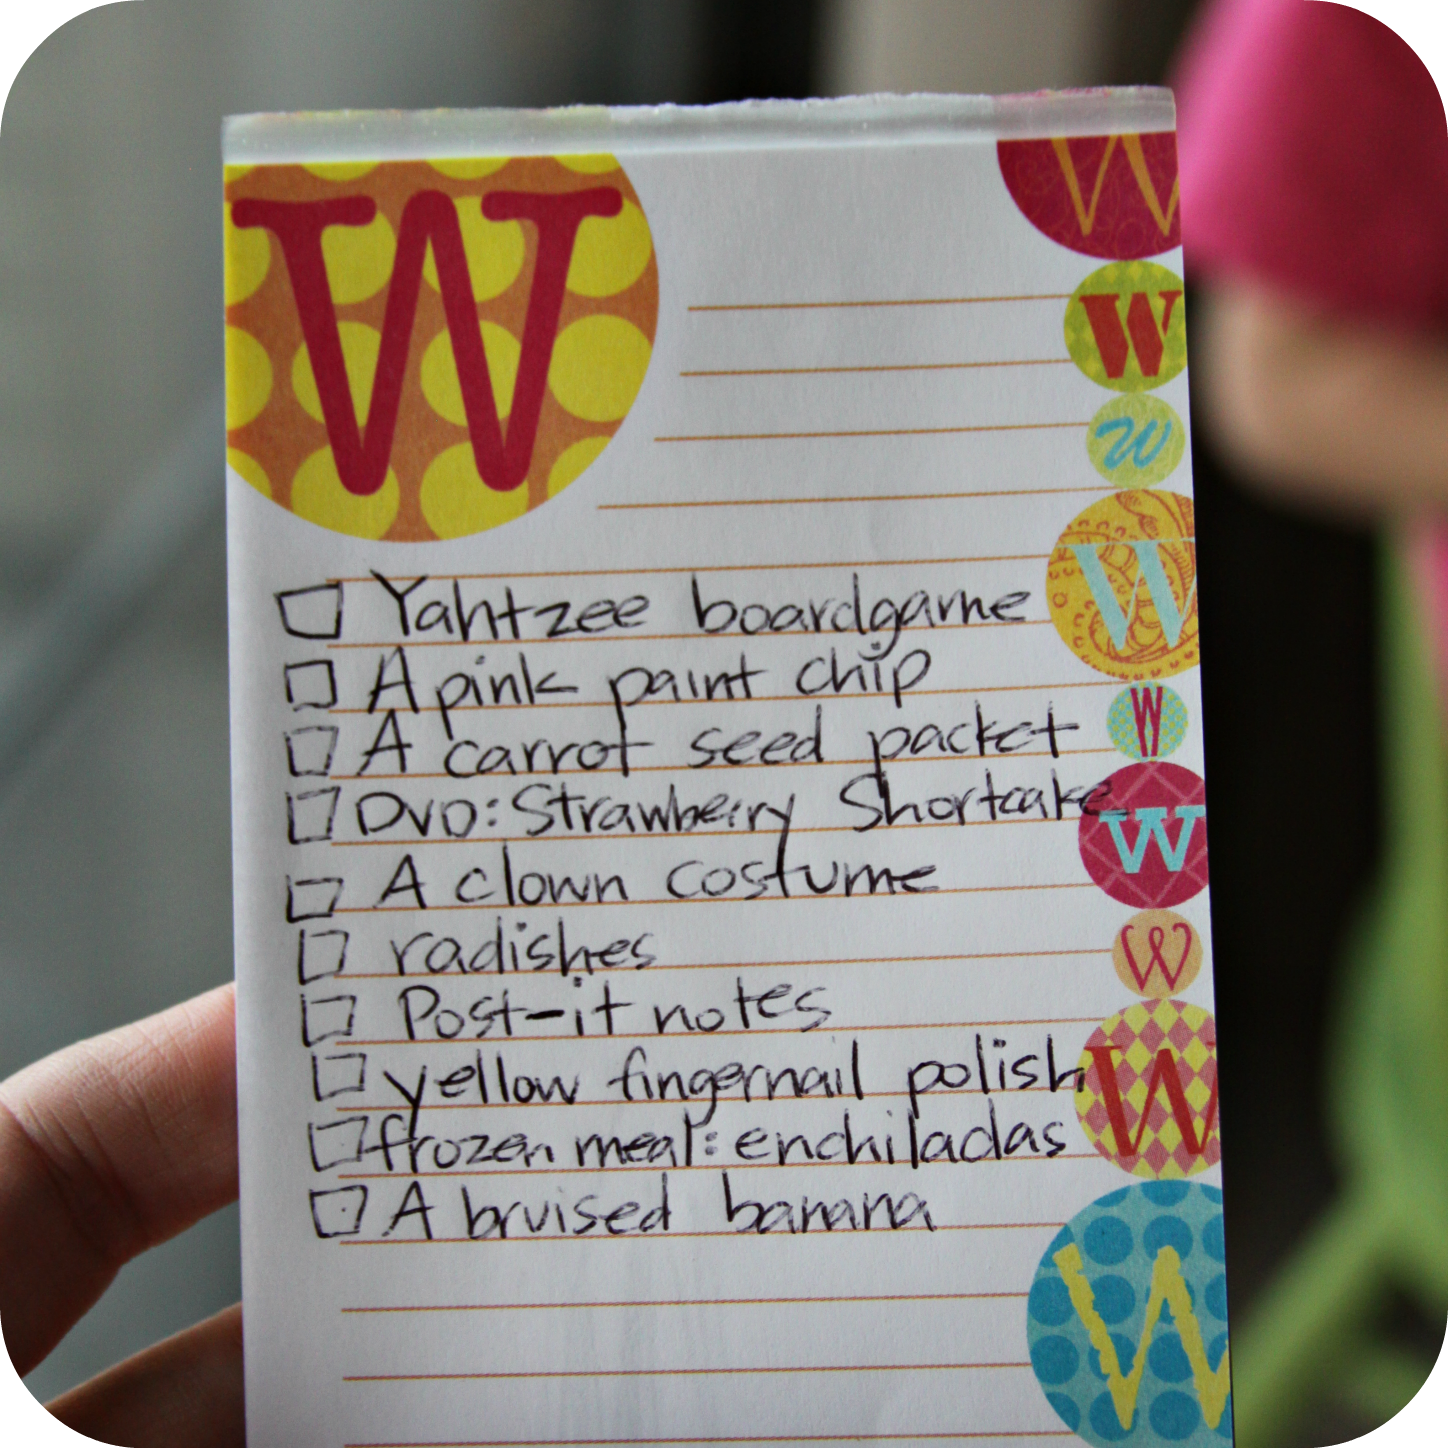 W
W
W
W
W
W
W
W
W
W
Yahtzee boardgame
A pink paint chip
A carrot seed packet
DVD: Strawberry Shortcake
A clown costume
radishes
Post-it notes
yellow fingernail polish
frozen meal: enchiladas
A bruised banana